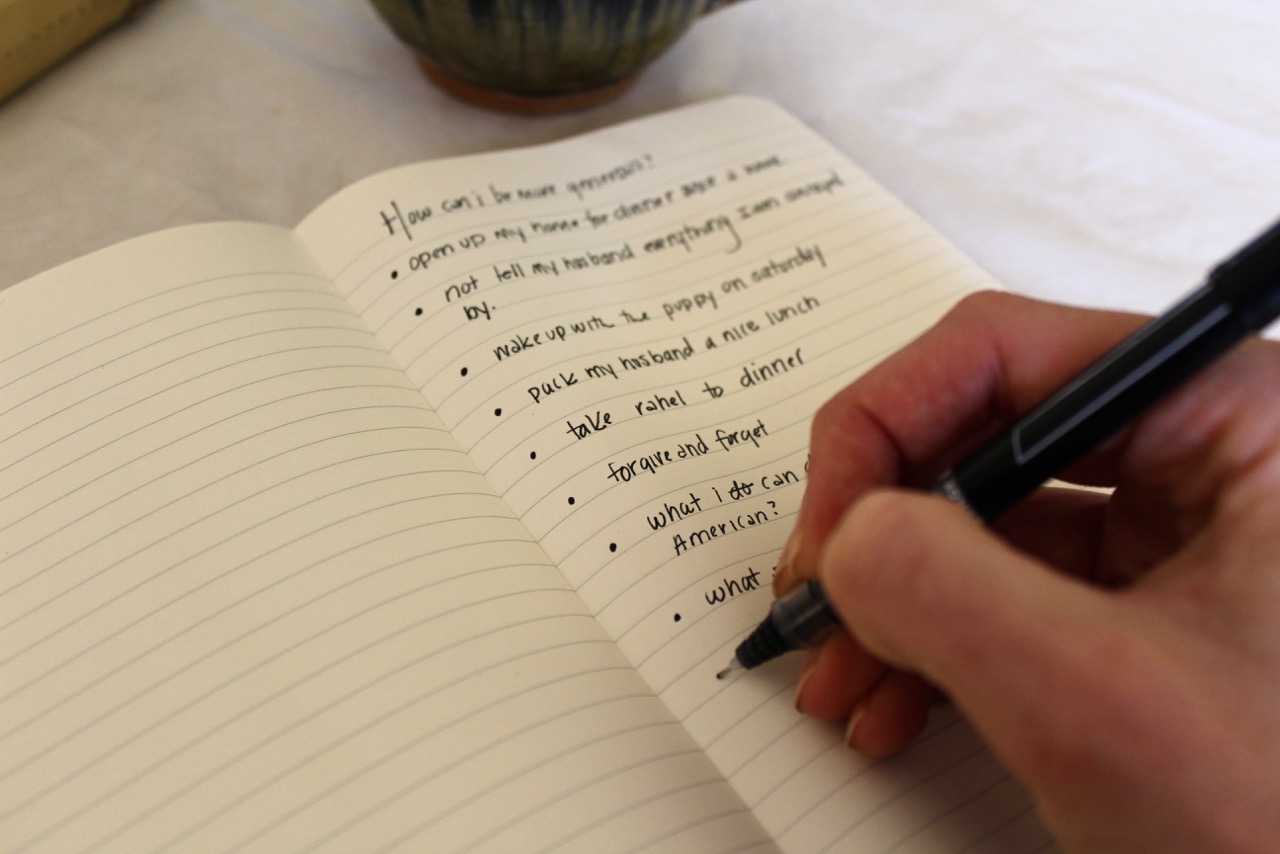 How can i be more generous?
• open up my home for dinner twice a week
• not tell my husband everything I am annoyed
by.
• wake up with the puppy on saturday
• pack my husband a nice lunch
• take rahel to dinner
• forgive and forget
• what i do can
American?
• what